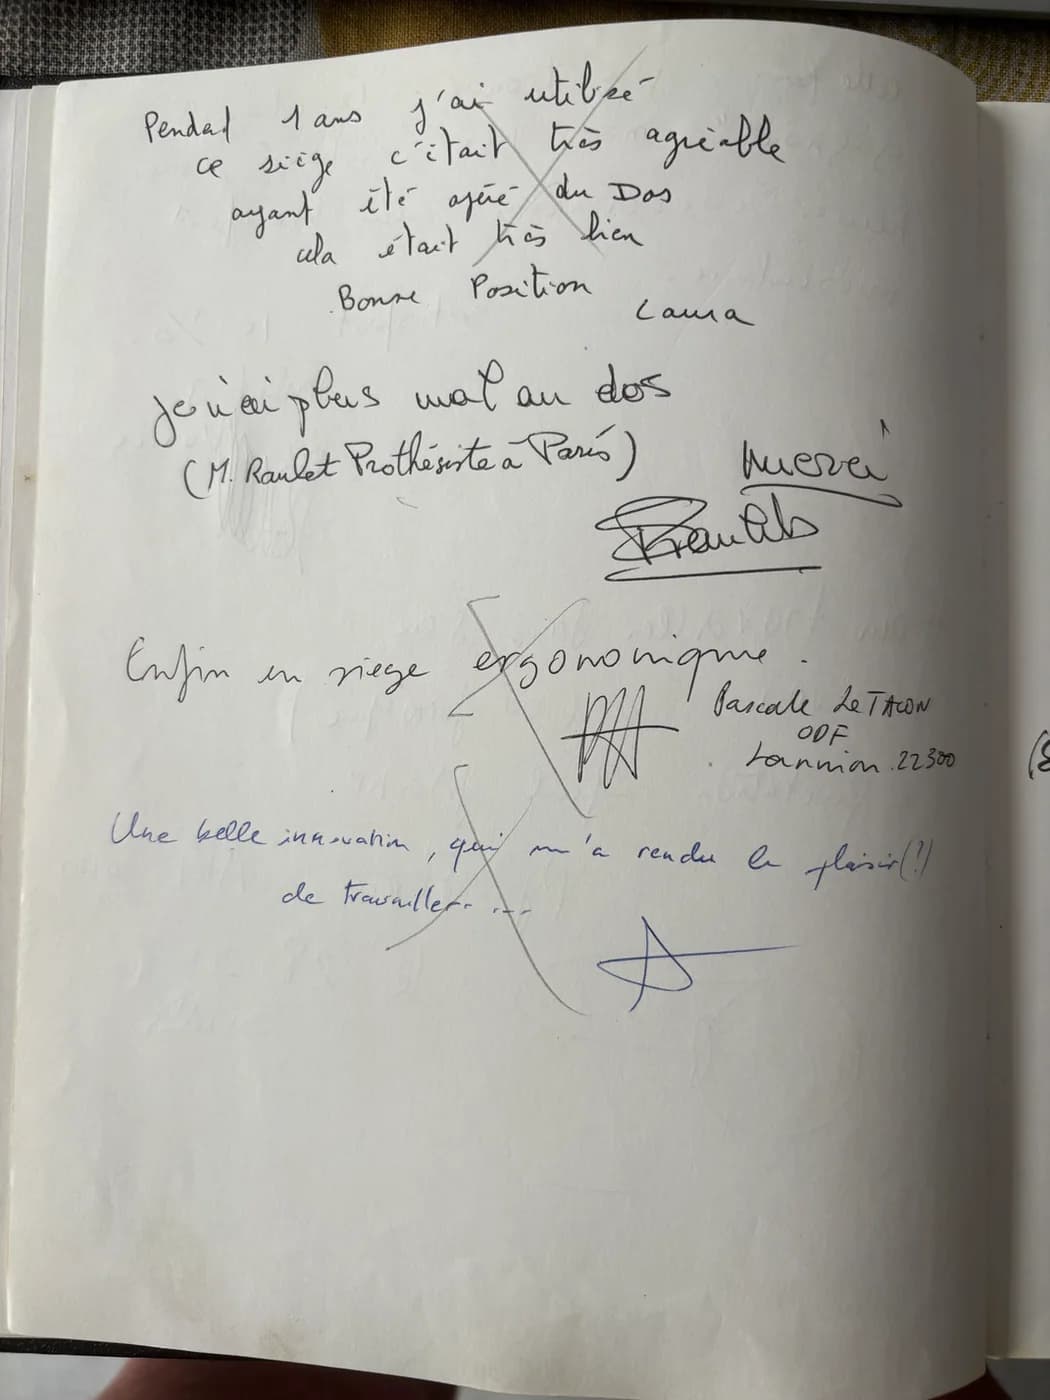 Pendad 1 ans j'ai utilisé
ce siège c'était très agréable
ayant été opéré du Dos
cela était très bien
Bonne Position
Laura
je n'ai plus mal au dos
(M. Raulet Prothésiste à Paris)
merci
Enfin un siege ergonomique.
Pascale LeTACON
ODF
Lannion 22300
Une belle innovation, qui m'a rendu le plaisir(!)
de travailler.....